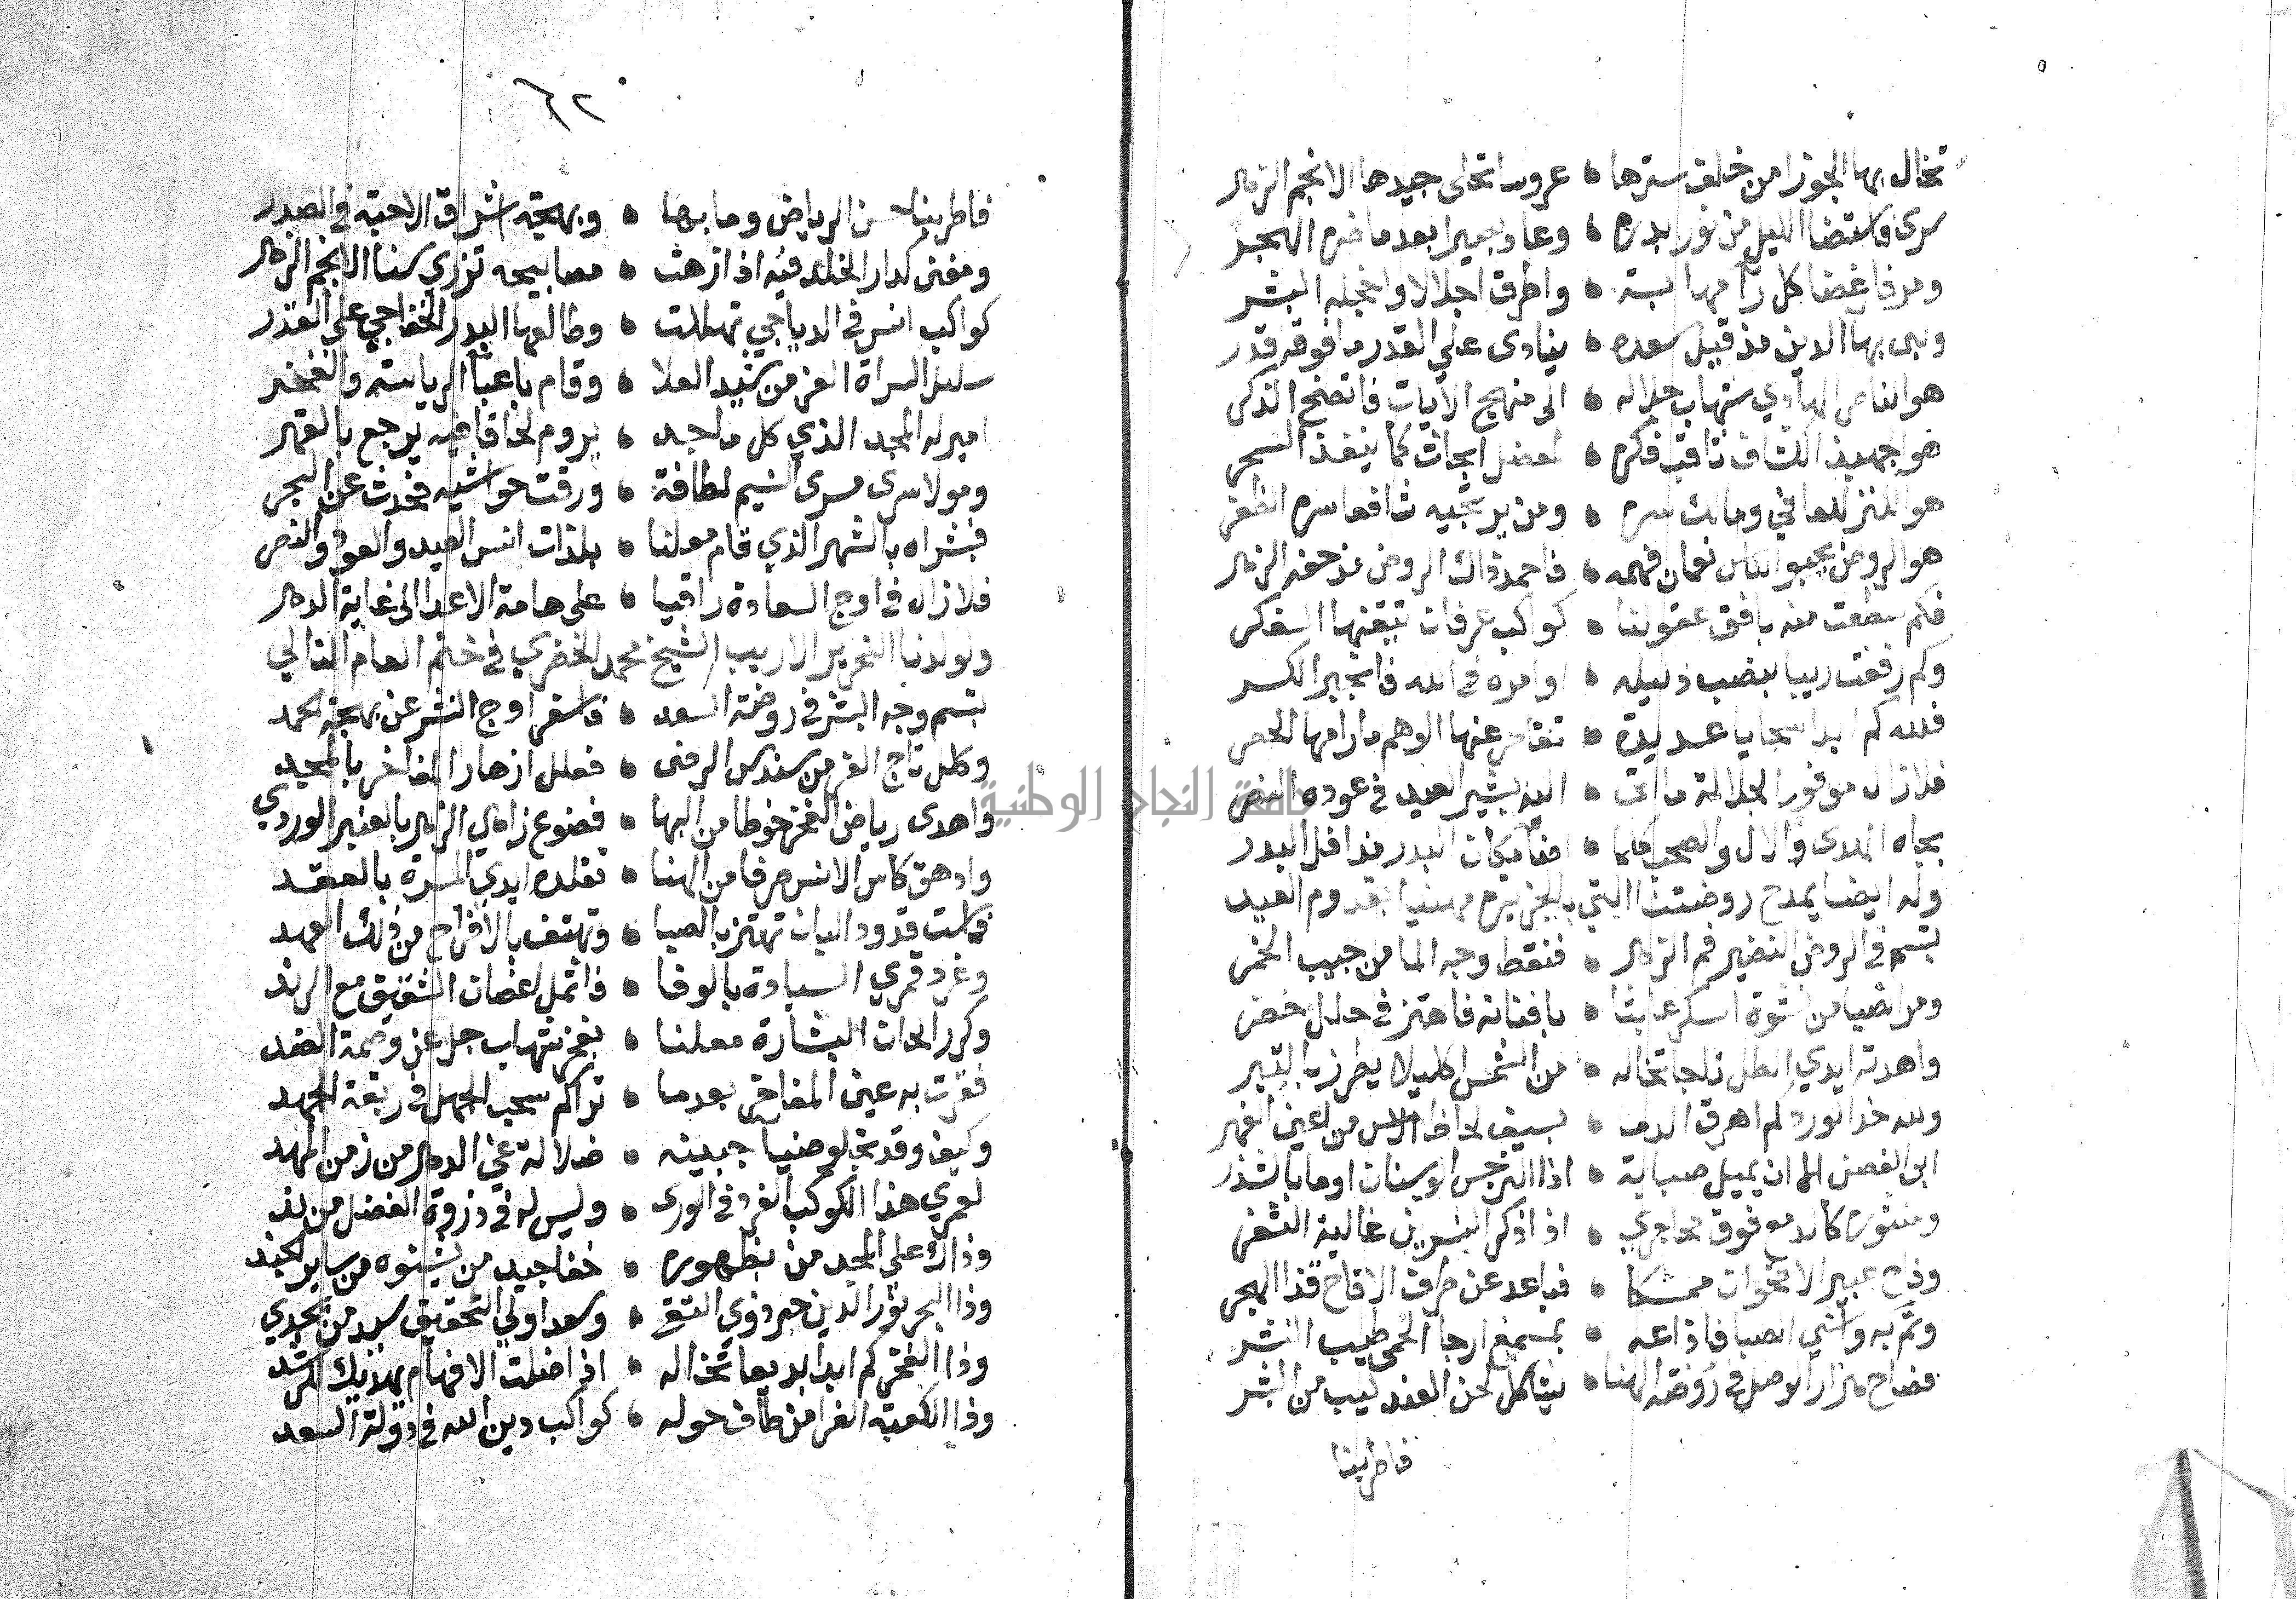 تخال بها الجوزا من خلف سترها • عروسا تحلى جيدها الانجم الزهر
سرى فاستضا الليل من نور بدره • وعاد بصيرا بعدما ضره الهجر
ومر فاغضا كل رآ مهابة • واطرق اجلالا واخجله البشر
بها الدين مذ قيل سعده • ينادى على القدر ما فوقه قدر
هو الناصر الهادي شهاب جلاله • الى منهج الايات فاتضح الذكر
هو الجهبذ ثاقب فكره • لمعضل ابحاث كما ينفذ السحر
هو المنزل العافي ومالك سره • ومن يرتجيه شافعا سره الظفر
هو الروض يحبو الناس نعمان فهمه • فاحمد ذاك الروض مذ حفه الزهر
فكم سطعت منه بافق عقولنا • كواكب عرفان تيقنها الفكر
وكم رفعت ريبا بنصب دليله • اوامره في الله فانجبر الكسر
فلله كم ابدا سجايا عديدة • تقاصر عنها الوهم مارامها الحصر
فلازال موفور الجلالة ما اتى • اليه بشير العيد في عوده النصر
بجاه الهدى والال والصحب كلما • اضا مكان البدر مذ افل البدر
وله ايضا يمدح روضتنا التي مهنيا بقدوم العيد
تبسم في الروض النضير فم الزهر • فنقط وجه الما من حبب الخمر
ومر الصبا من نشوة السكر عابثا • بافنانه فاهتز في حلل خضر
واهدته ايدي الطل تاجا تخاله • من الشمس اكليلا يطرز بالتبر
ولله خد الورد كم اهرق الدما • بسيف لحاظ الاس من اعين الغمر
ابى الغصن الا ان يميل صبابة • اذا النرجس الوسنان اوما بالشذر
ومنثوره كالدمع فوق محاجري • اذا ذكر النسرين غالية الثغر
وفاح عبير الاقحوان ممسكا • فباعد عن طرف الاقاح قذا الهجر
ونم به واشي الصبا فاذاعه • بمسمع ارجا الحمى طيب النشر
فصاح هزار الوصل في روضة الهنا • يشاكل لحن العندليب من البشر
فاطربنا
٦٢
فاطربنا حسن الرياض وما بها • وبهجته اشراق الاحبة في الصدر
ومغنى كدار الخلد فيه اذا ازهت • مصابيحه تزري سنا الانجم الزهر
كواكب انس في الدياجي تهللت • وطالعها البدر الخفاجي على القدر
سليل السراة الغر من شيد العلا • وقام باعبا الرياسة والفخر
امير له المجد الذي كل ماجد • يروم لحاقا فيه يرجع بالقهر
ومولا سرى مسرى النسيم لطافة • ورقت حواشيه فحدث عن البحر
فبشراه بالشهر الذي قام معلنا • بلذات انس العيد والعود والنصر
فلازال في اوج السعادة راقيا • على هامة الاعدا الى غاية الدهر
ولولدنا النحرير الاريب الشيخ محمد الخضري في ختم العام التالي
تبسم وجه البشر في روضة السعد • فاسفر اوج النشر عن بهجة الحمد
وكلل تاج العز من سندس الرضى • فعلل ازهار المفاخر بالمجد
واهدى رياض الفخر خوطا من البها • فضوع زاهي الزهر بالعنبر الوردي
وادهق كاس الانس صرفا من الهنا • تقلده ايدي المسرة بالعقد
فمالت قدود البان تهتز بالصبا • وتهتف بالافراح من ذلك العهد
وغرد قمري السيادة بالوفا • فاثمل اغصان الشقيق مع الرند
وكرر الحان البشارة معلنا • بفخر شهاب جل عن وصمة الضد
فقرت به عين المفاخر بعدما • تراكم سحب الجهل في ربقة الجهد
وكيف وقد تجلو ضيا جبينه • ضلالة غي الدهر من زمن المهد
لعمري هذا الكوكب الفرد في الورى • وليس له في ذروة الفضل من ند
وذاك علي المجد من بظهوره • خفا جيد من يشنوه من ساير الجند
وذا البحر نور الدين صدر ذوي التقى • وسعد اولي التحقيق سيد من يجدي
وذا الفخر كم ابدا بديعا تخاله • اذا ضلت الافهام يهديك للرشد
وذا الكعبة الغرا من طاف حوله • كواكب دين الله في دولة السعد